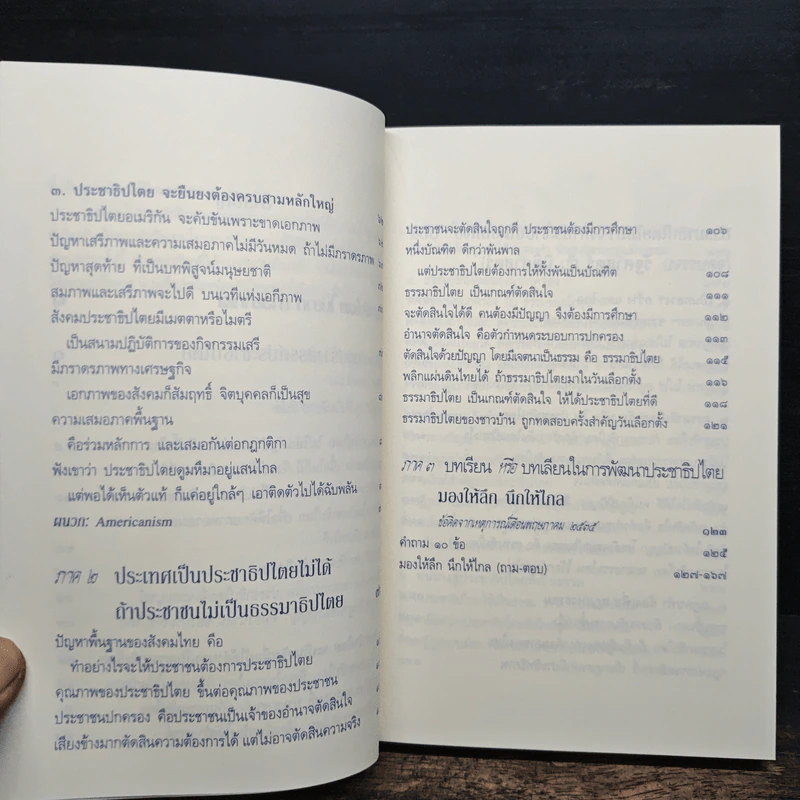 ๓. ประชาธิปไตย จะยืนยงต้องครบสามหลักใหญ่
ประชาธิปไตยอเมริกัน จะคับขันเพราะขาดเอกภาพ
ปัญหาเสรีภาพและความเสมอภาคไม่มีวันหมด ถ้าไม่มีภราดรภาพ
ปัญหาสุดท้าย ที่เป็นบทพิสูจน์มนุษยชาติ
สมภาพและเสรีภาพจะไปดี บนเวทีแห่งเอกีภาพ
สังคมประชาธิปไตยมีเมตตาหรือไมตรี
เป็นสนามปฏิบัติการของกิจกรรมเสรี
มีภราดรภาพทางเศรษฐกิจ
เอกภาพของสังคมก็สัมฤทธิ์ จิตบุคคลก็เป็นสุข
ความเสมอภาคพื้นฐาน
คือร่วมหลักการ และเสมอกันต่อกฎกติกา
ฟังเขาว่า ประชาธิปไตยดูมหึมาอยู่แสนไกล
แต่พอได้เห็นตัวแท้ ก็แค่อยู่ใกล้ๆ เอาติดตัวไปได้ฉับพลัน
ผนวก: Americanism
ภาค ๒ ประเทศเป็นประชาธิปไตยไม่ได้
ถ้าประชาชนไม่เป็นธรรมาธิปไตย
ปัญหาพื้นฐานของสังคมไทย คือ
ทำอย่างไรจะให้ประชาชนต้องการประชาธิปไตย
คุณภาพของประชาธิปไตย ขึ้นต่อคุณภาพของประชาชน
ประชาชนปกครอง คือประชาชนเป็นเจ้าของอำนาจตัดสินใจ
เสียงข้างมากตัดสินความต้องการได้ แต่ไม่อาจตัดสินความจริง
ประชาชนจะตัดสินใจถูกดี ประชาชนต้องมีการศึกษา ๑๐๖
หนึ่งบัณฑิต ดีกว่าพันพาล
แต่ประชาธิปไตยต้องการให้ทั้งพันเป็นบัณฑิต ๑๐๘
ธรรมาธิปไตย เป็นเกณฑ์ตัดสินใจ ๑๑๑
จะตัดสินใจได้ดี คนต้องมีปัญญา จึงต้องมีการศึกษา ๑๑๒
อำนาจตัดสินใจ คือตัวกำหนดระบอบการปกครอง ๑๑๓
ตัดสินใจด้วยปัญญา โดยมีเจตนาเป็นธรรม คือ ธรรมาธิปไตย ๑๑๕
พลิกแผ่นดินไทยได้ ถ้าธรรมาธิปไตยมาในวันเลือกตั้ง ๑๑๖
ธรรมาธิปไตย เป็นเกณฑ์ตัดสินใจ ให้ได้ประชาธิปไตยที่ดี ๑๑๘
ธรรมาธิปไตยของชาวบ้าน ถูกทดสอบครั้งสำคัญวันเลือกตั้ง ๑๒๑
ภาค ๓ บทเรียน หรือ บทเลียนในการพัฒนาประชาธิปไตย
มองให้ลึก นึกให้ไกล
ข้อคิดจากเหตุการณ์เดือนพฤษภาคม ๒๕๓๕ ๑๒๓
คำถาม ๑๐ ข้อ ๑๒๕
มองให้ลึก นึกให้ไกล (ถาม-ตอบ) ๑๒๗-๑๖๗